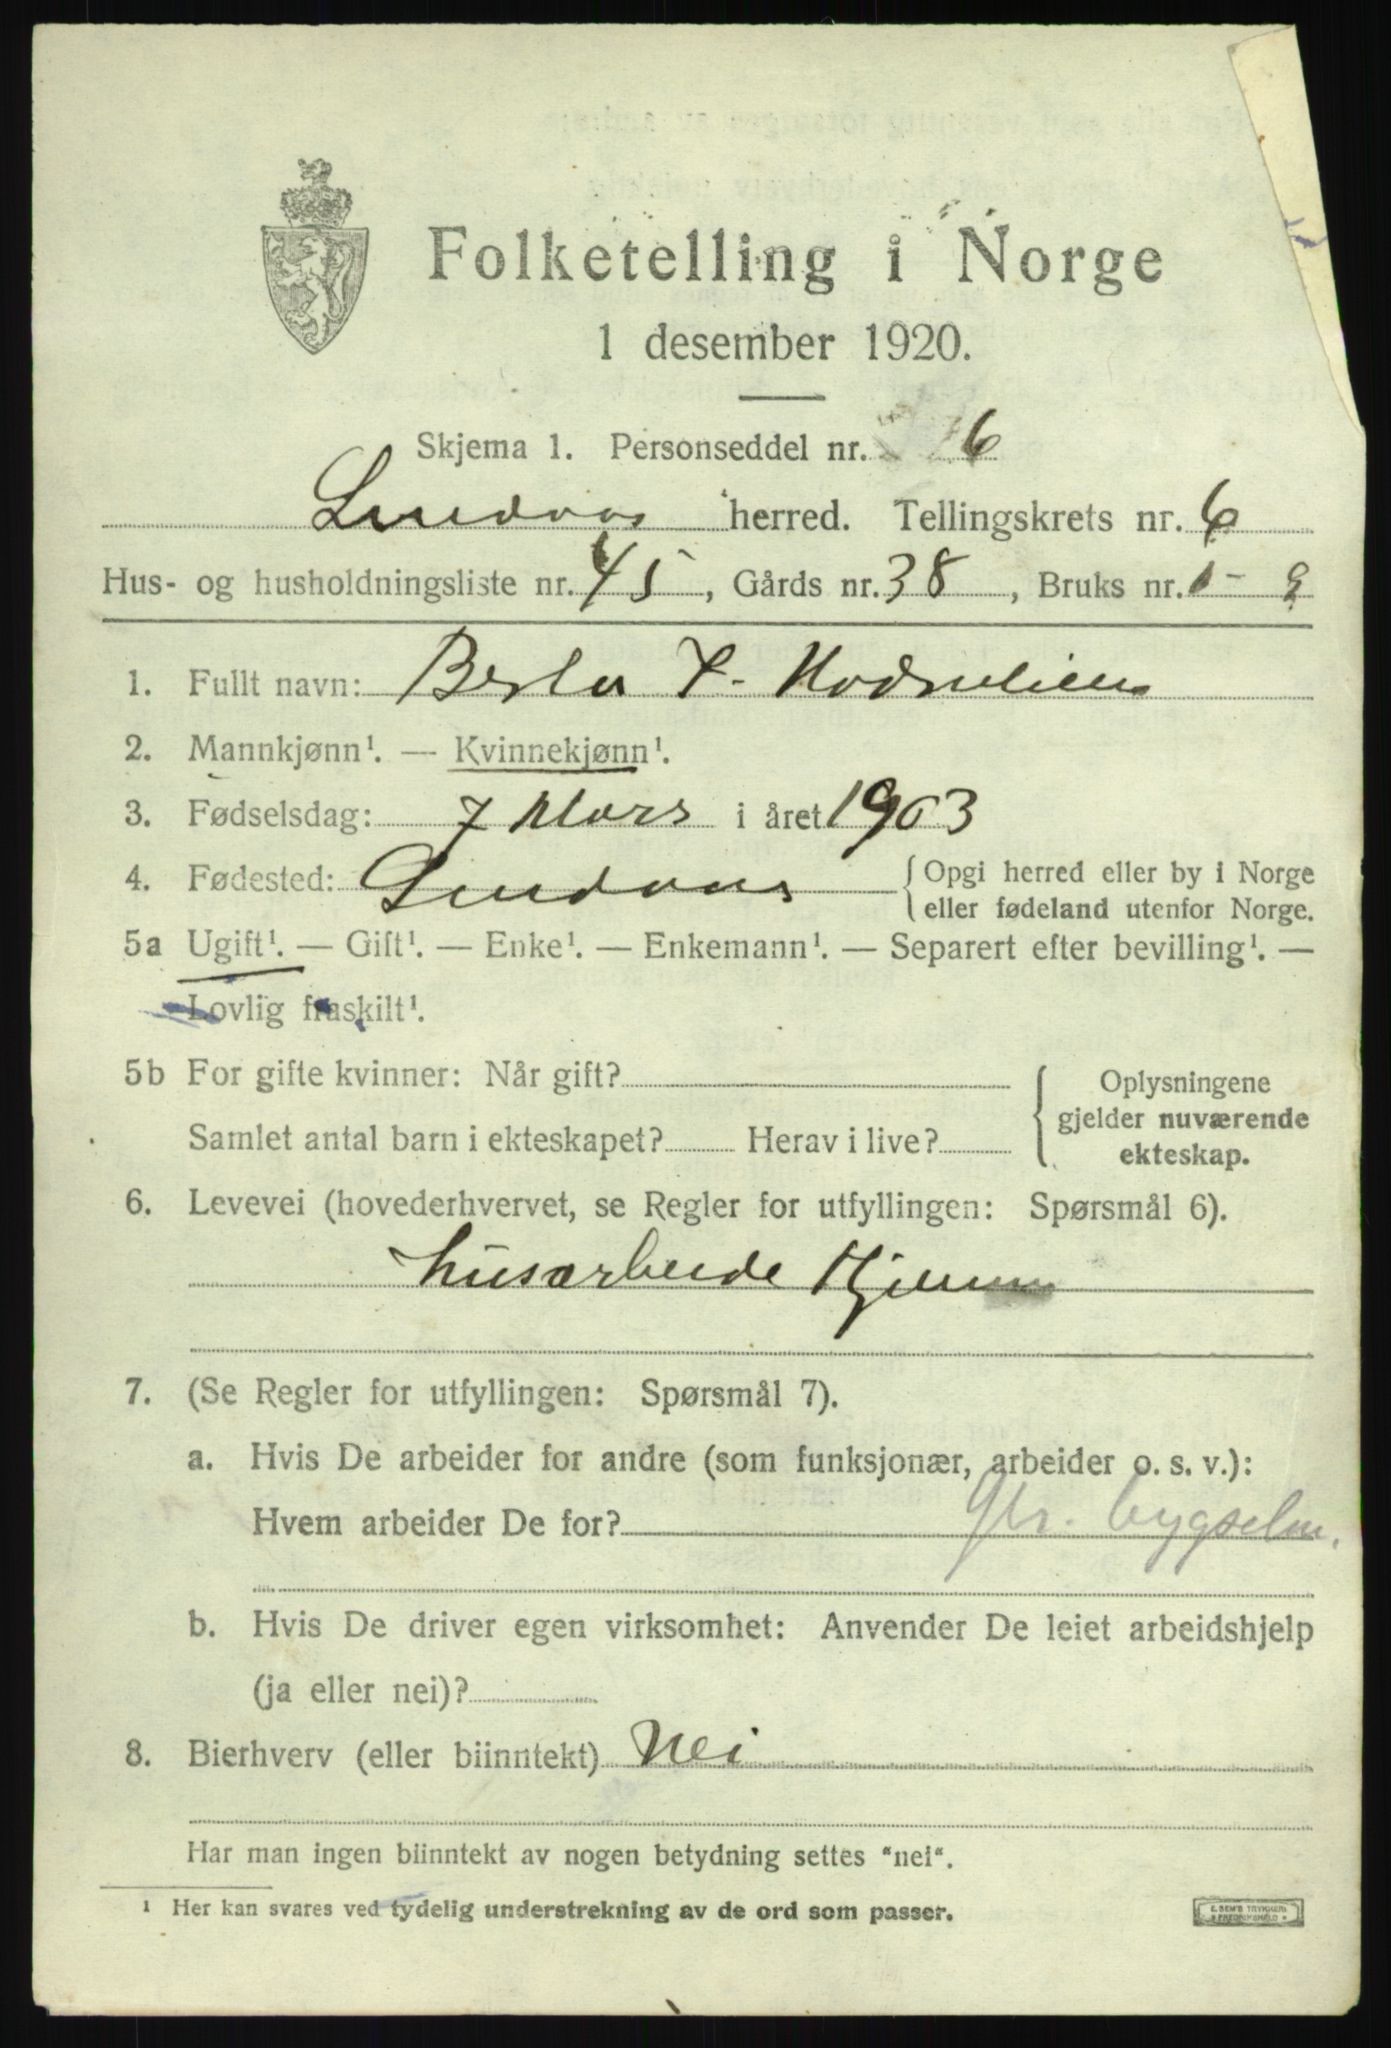 Folketelling i Norge
1 desember 1920.
Skjema 1. Personseddel nr. 6
Lindaas herred. Tellingskrets nr. 6
Hus- og husholdningsliste nr. 45, Gårds nr. 38, Bruks nr. 1 - 9
1. Fullt navn: Berta
2. Mannkjønn¹. — Kvinnekjønn¹.
3. Fødselsdag: 7 Mars i året 1903
4. Fødested: Lindaas {Opgi herred eller by i Norge
eller fødeland utenfor Norge.
5a Ugift¹. — Gift¹. — Enke¹. — Enkemann¹. — Separert efter bevilling¹. —
Lovlig fraskilt¹.
5b For gifte kvinner: Når gift? {Oplysningene
gjelder nuværende
Samlet antal barn i ekteskapet? Herav i live?
ekteskap.
6. Levevei (hovederhvervet, se Regler for utfyllingen: Spørsmål 6).
husarbeide Hjemme
7. (Se Regler for utfyllingen: Spørsmål 7).
a. Hvis De arbeider for andre (som funksjonær, arbeider o. s. v.):
Hvem arbeider De for? bygselm.
b. Hvis De driver egen virksomhet: Anvender De leiet arbeidshjelp
(ja eller nei)?
8. Bierhverv (eller biinntekt) Nei
Har man ingen biinntekt av nogen betydning settes "nei".
¹ Her kan svares ved tydelig understrekning av de ord som passer.
E. SEM'S TRYKKERI
FREDRIKSHALD